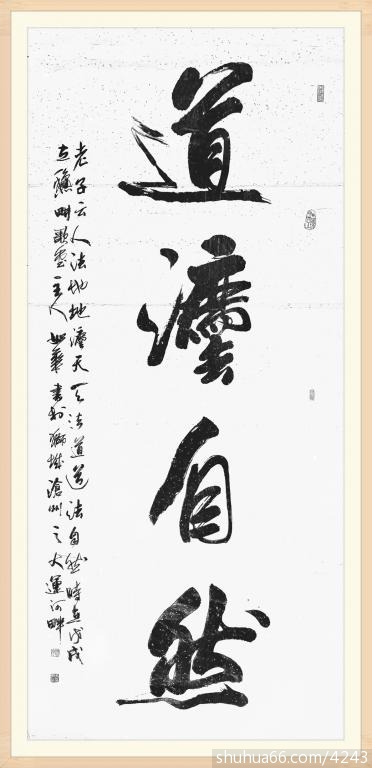 道灋自然
老子云人法地地灋天天法道道法自然時在戊戌
主人如華書於獅城滄州之大運河畔
shuhua66.com/4243